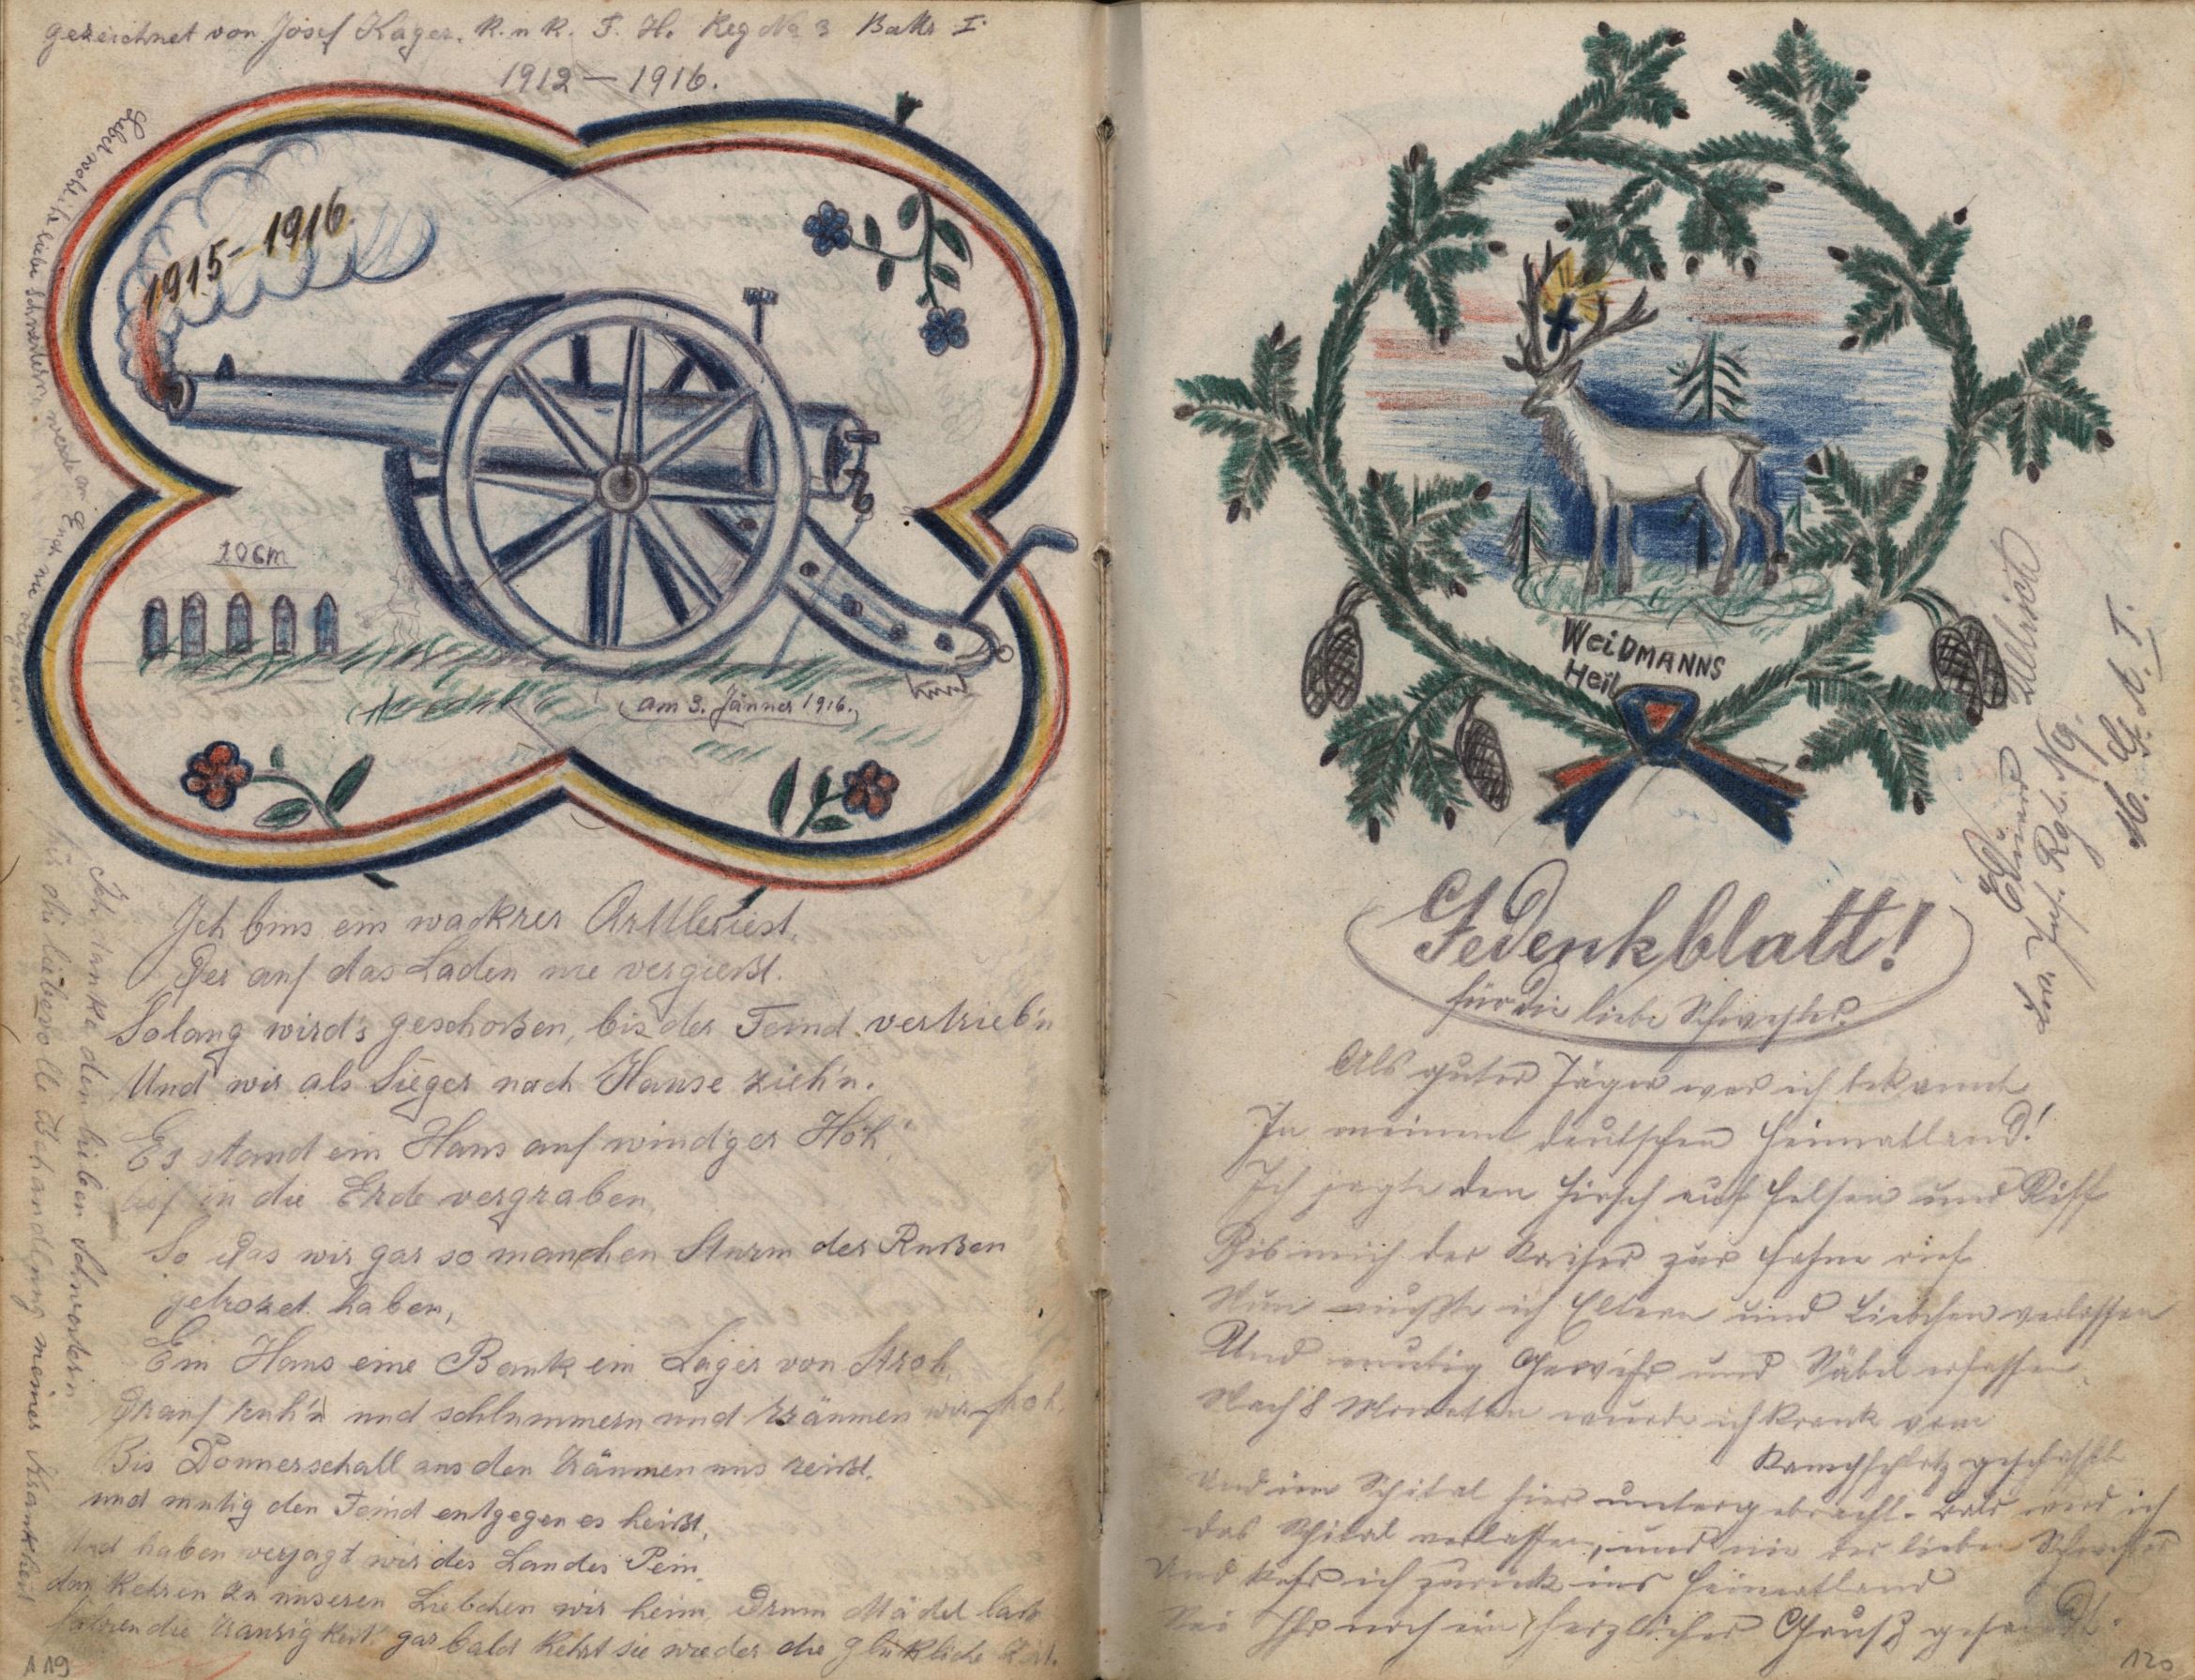 gezeichnet von Josef Kager. K. u K. F. H. Reg No 3 Battr I.
1912 — 1916.
1915 - 1916.
10 cm
am 3. Jänner 1916.
Lebet wohl ihr liebe Schwestern, werde an Euch nie vergessen.
Ich danke den lieben Schwestern
für die liebevolle Behandlung meiner Krankheit
Ich bins ein wackrer Artilleriest,
Der auf das Laden nie vergießt.
Solang wird's geschoßen, bis der Feind vertrieb'n
Und wir als Sieger nach Hause zieh'n.
Es stand ein Haus auf wind'ger Höh'
tief in die Erde vergraben,
So das wir gar so manchen Sturm der Rußen
getrozet haben,
Ein Haus eine Bank ein Lager von Stroh,
Drauf ruh'n und schlummern und träumen wir froh.
Bis Donnerschall aus den Träumen uns reißt,
und mutig den Feind entgegen es heißt,
und haben verjagt wir des Landes Pein,
dan kehren zu unseren Liebchen wir heim, Drum Mädel laß
fahren die Traurigkeit gar bald kehrt sie wieder die glükliche Zeit.
119
WEIDMANNS
Heil
Gedenkblatt!
für die liebe Schwester.
Eduard
Inf. Rgt. No.
Als guter Jäger war ich bekannt
In meinem deutschen Heimatland!
Ich jagte den Hirsch auf Felsen und Riff
Bis mich der Kaiser zur Fahne rief
Nun mußte ich Eltern und Liebchen verlassen
Und mutig Gewehr und Säbel erfassen.
Nach 8 Monaten wurde ich krank vom
Kampfplatz geschafft
Und im Spital hier untergebracht. Bald werd ich
das Spital verlassen, und nie der liebe Schwester
Und kehr ich zurück ins Heimatland
Sei Ihr noch ein herzlicher Gruß gesandt.
120